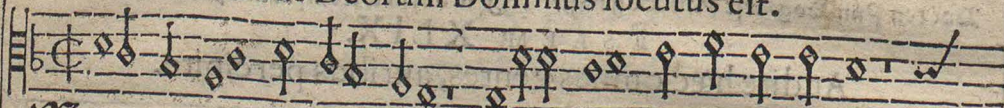 Deorum Dominus locutus est.